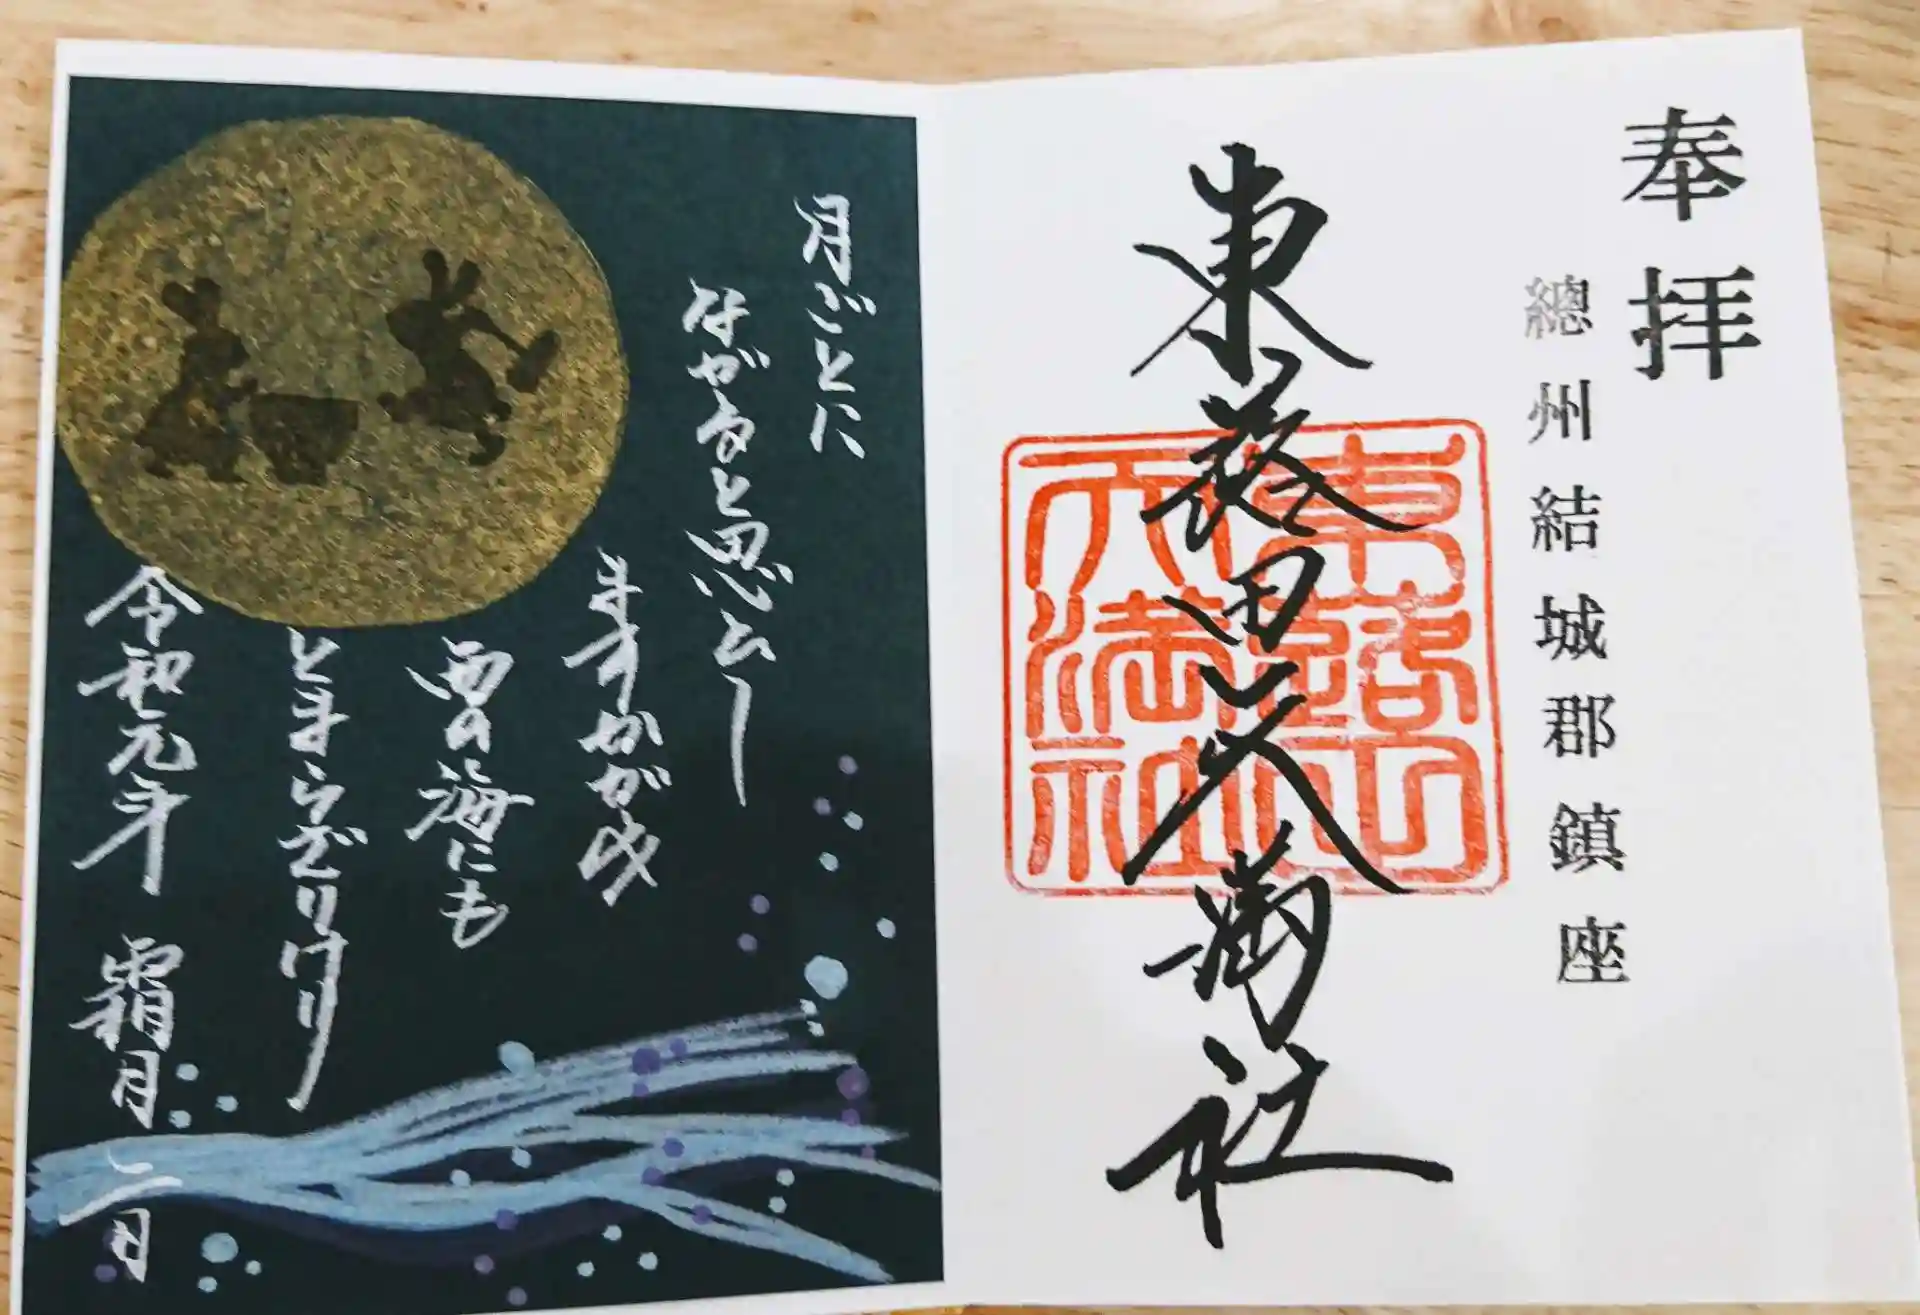 奉拝
總州結城郡鎮座
東蕗田天満社
東蕗田
天満社
月ごとに
ながると思ひし
ますかがみ
西の海にも
とまらざりけり
令和元年 霜月 二日